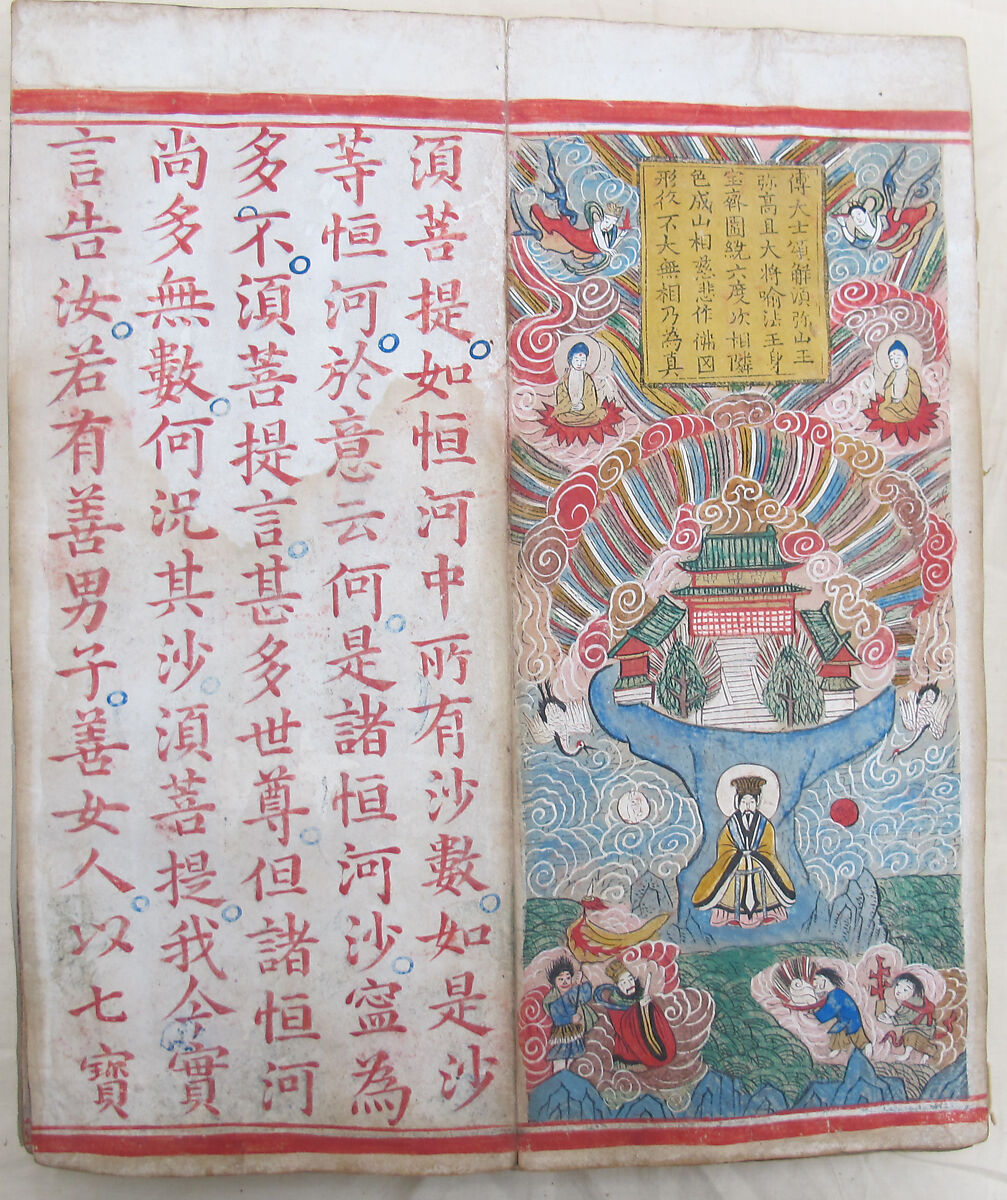 傅大士頌解湏弥山王
弥高且大將喻法王身
宝齊圍繞六度次相隣
色成山相慈悲作佛因
形終不大無相乃為真
湏菩提。如恒河中所有沙數。如是沙
等恒河。於意云何。是諸恒河沙。寍為
多。不。湏菩提言。甚多世尊。但諸恒河
尚多無數。何況其沙。湏菩提。我今實
言告汝。若有善男子。善女人。以七寶